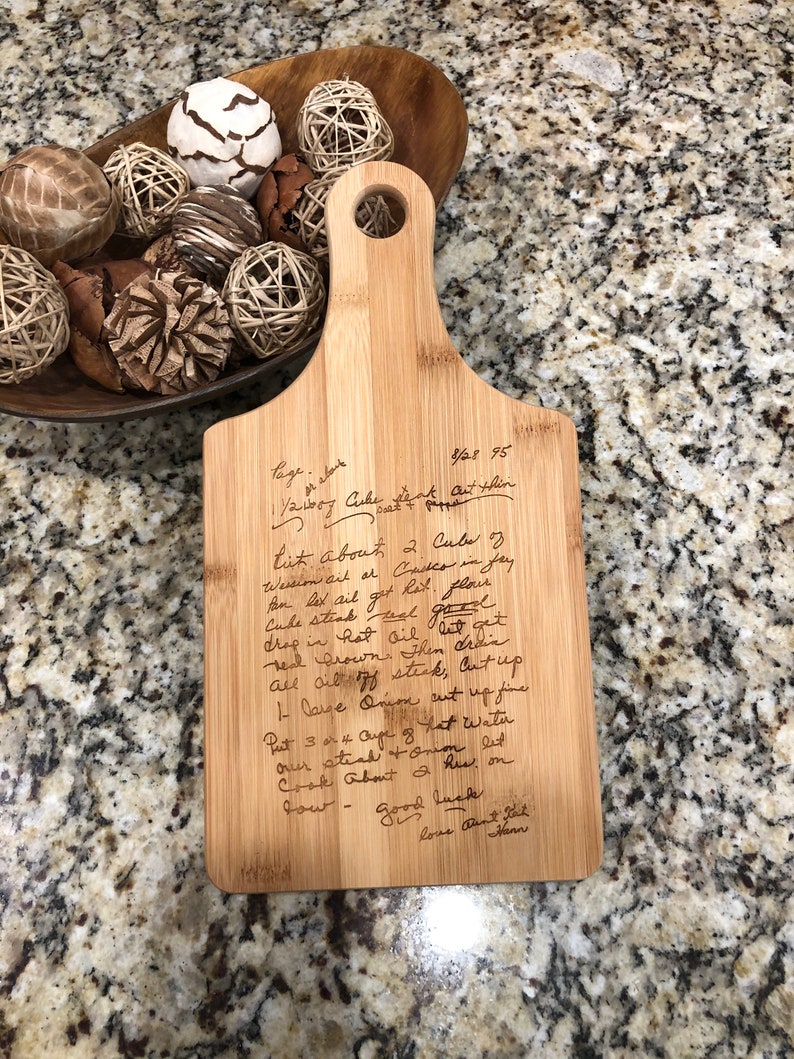 Page - 8/28 95
or about
1 1/2 lb of Cube steak cut thin
salt + pepper
Put About 2 Cubs of
Wession oil or Crisco in fry
Pan let oil get hot. flour
Cube steak real good
drop in hot oil let get
real brown. Then drain
All oil off steak, Cut up
1- large Onion cut up fine
Put 3 or 4 Cups of hot water
over steak + onion let
Cook About 2 hrs. on
low - good luck
love Aunt
Hann